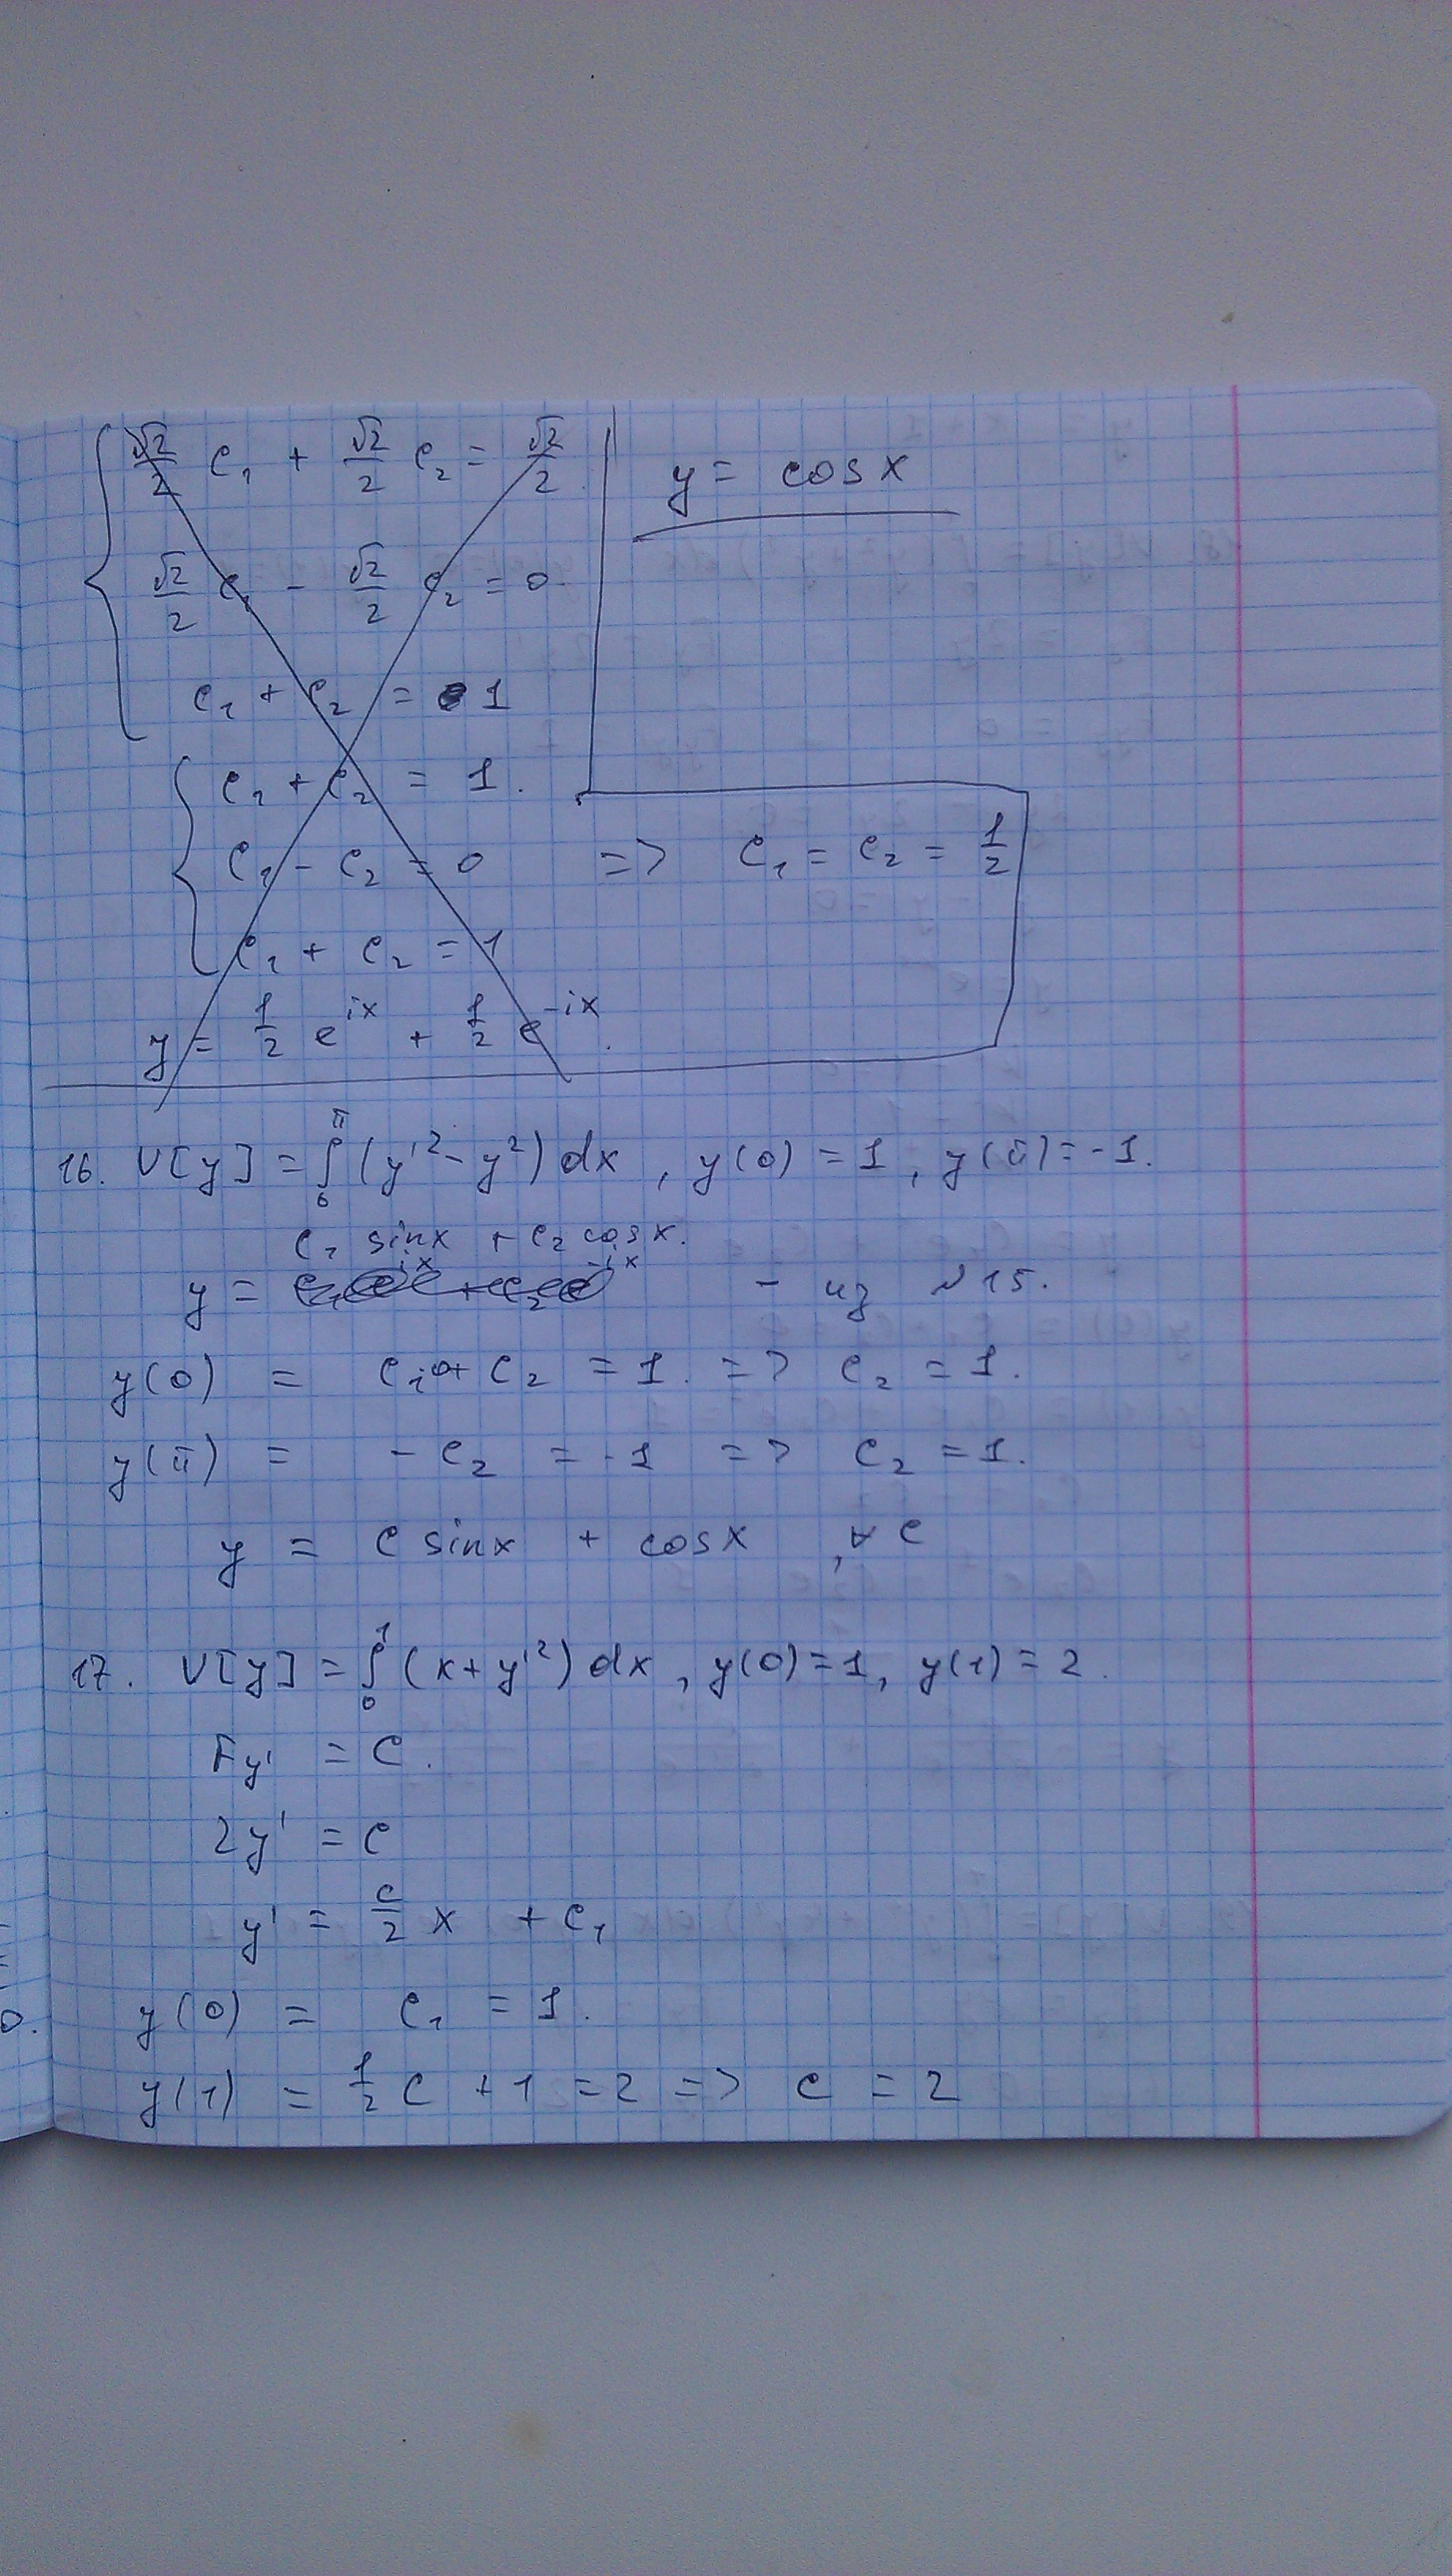 √2/2 c₁ + √2/2 c₂ = √2/2
y = cos x
√2/2 c₁ - √2/2 c₂ = 0
c₁ + c₂ = 1
c₁ + c₂ = 1.
c₁ - c₂ = 0 => c₁ = c₂ = 1/2
c₁ + c₂ = 1
y = 1/2 e^{ix} + 1/2 e^{-ix}.
16. V[y] = ∫₀^π (y'² - y²) dx, y(0) = 1, y(π) = -1.
c₁ sinx + c₂ cosx.
y = - из №15.
y(0) = c₂ = 1. => c₂ = 1.
y(π) = - c₂ = -1 => c₂ = 1.
y = c sinx + cosx, ∀ c
17. V[y] = ∫₀¹ (x + y'²) dx, y(0) = 1, y(1) = 2.
Fy' = c.
2y' = c
y' = c/2 x + c₁
y(0) = c₁ = 1.
0.
y(1) = 1/2 c + 1 = 2 => c = 2